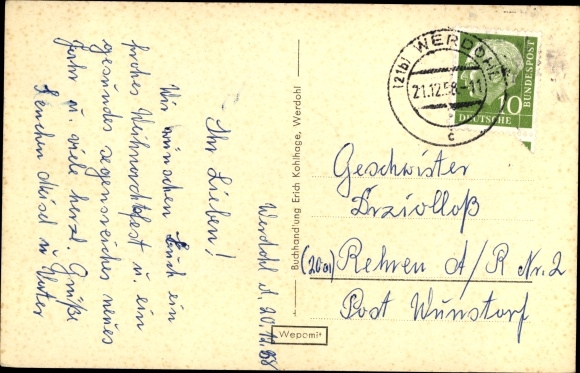 Werdohl d. 20.12.58
Ihr Lieben!
Wir wünschen Euch ein
frohes Weihnachtsfest u. ein
gesundes segensreiches neues
Jahr u. viele herzl. Grüße
Lenchen u. Mutter
Buchhandlung Erich Kohlhage, Werdohl
Wepomit
(21b) WERDOHL
21.12.58-11
c
10
DEUTSCHE
BUNDESPOST
Geschwister
(20a) Rehren A/R Nr. 2
Post Wunstorf